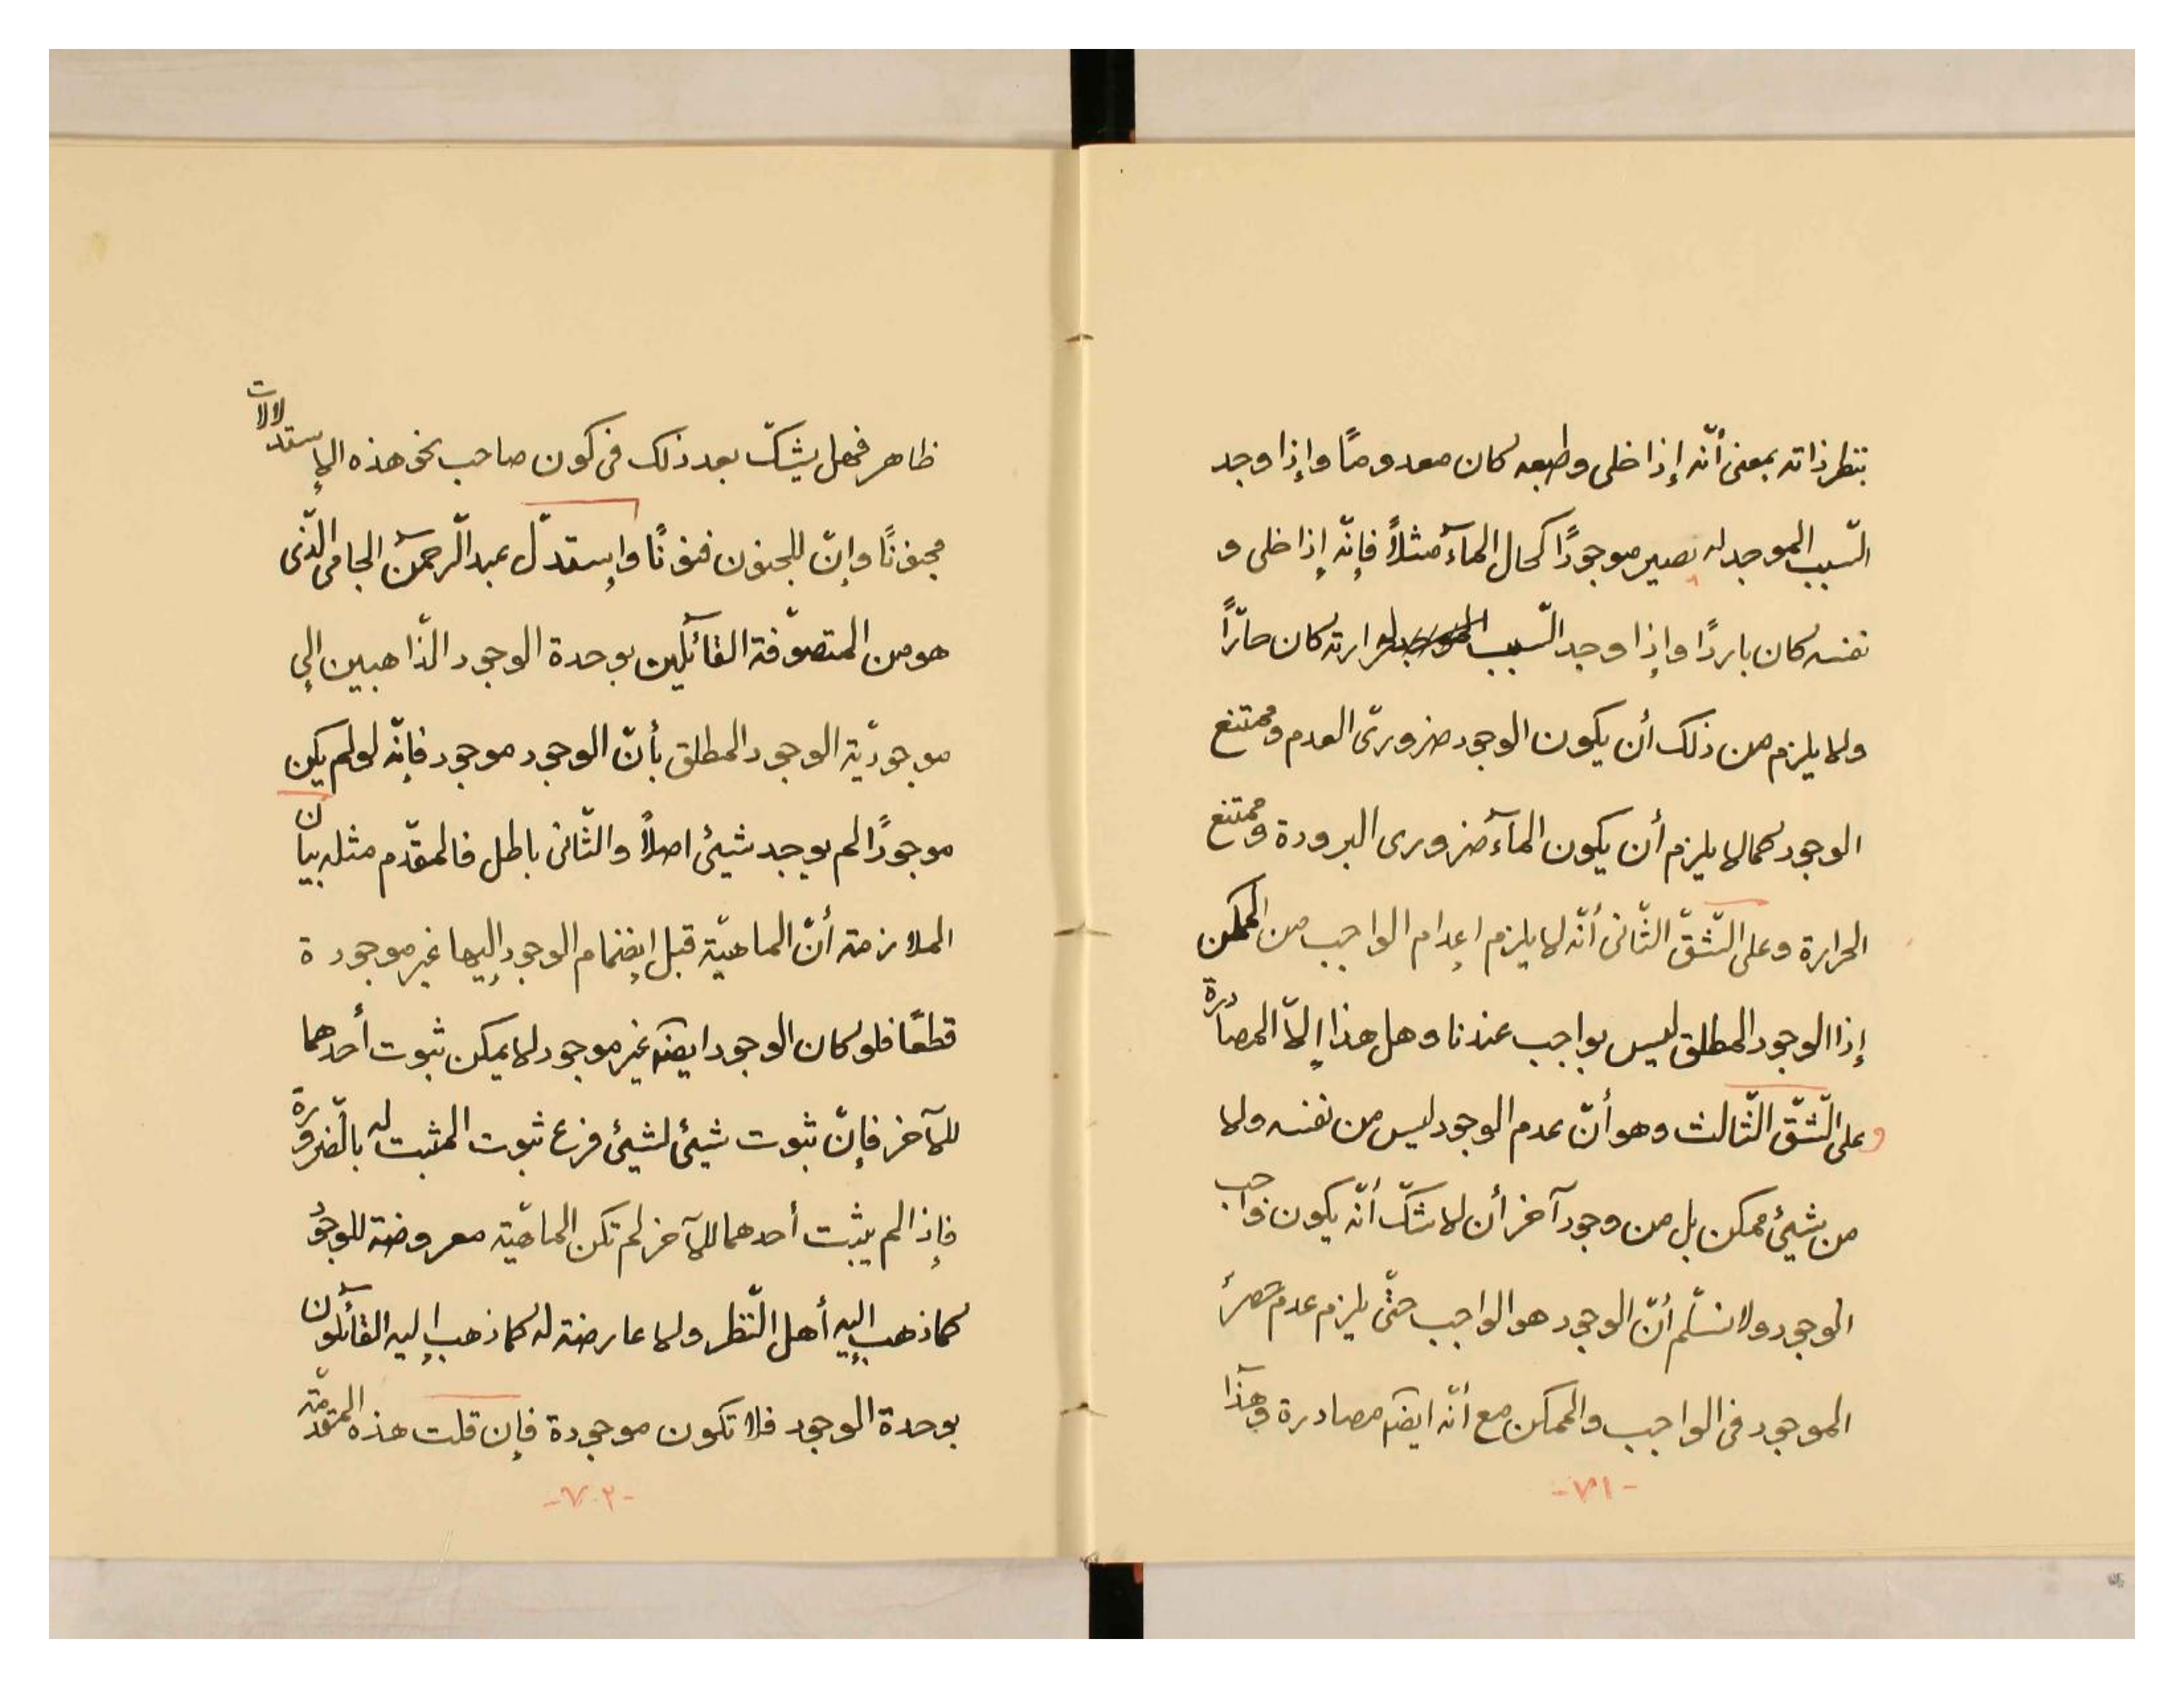 بنظر ذاته بمعنى أنّه إذا خلى وطبعه كان معدومًا وإذا وجد
السّبب الموجد له يصير موجودًا كحال المآء مثلاً فإنّه إذا خلى و
نفسه كان باردًا وإذا وجد السّبب لحرارته كان حارًّا
ولا يلزم من ذلك أن يكون الوجود ضروريّ العدم وممتنع
الوجود كما لا يلزم أن يكون المآء ضرورى البرودة وممتنع
الحرارة وعلى الشّقّ الثّانى أنّه لا يلزم إعدام الواجب من الممكن
إذا الوجود المطلق ليس بواجب عندنا وهل هذا إلاّ المصادرة
وعلى الشّقّ الثّالث وهو أنّ عدم الوجود ليس من نفسه ولا
من شيئ ممكن بل من وجود آخر أن لا شكّ أنّه يكون واجب
الوجود ولا نسلّم أنّ الوجود هو الواجب حتّى يلزم عدم حصر
الموجود فى الواجب والممكن مع أنّه ايضًا مصادرة وهذا
-٧١-
ظاهر فهل يشكّ بعد ذلك فى كون صاحب نحو هذه الإستدلالات
مجنونًا وإنّ للجنون فنونًا وإستدلّ عبد الرّحمن الجامى الّذى
هو من المتصوّفة القآئلين بوحدة الوجود الذّاهبين إلى
موجوديّة الوجود المطلق بأنّ الوجود موجود فإنّه لو لم يكن
موجودًا لم يوجد شيئ اصلاً والثّانى باطل فالمقدّم مثله بيان
الملازمة أنّ الماهيّة قبل إنضمام الوجود إليها غير موجودة
قطعًا فلو كان الوجود ايضًا غير موجود لا يمكن ثبوت أحدهما
للآخر فإنّ ثبوت شيئ لشيئ فرع ثبوت المثبت له بالضّرورة
فإذا لم يثبت أحدهما للآخر لم تكن الماهيّة معروضة للوجود
كما ذهب إليه أهل النّظر ولا عارضة له كما ذهب إليه القآئلون
بوحدة الوجود فلا تكون موجودة فإن قلت هذه المقدّمة
-٧٠٢-